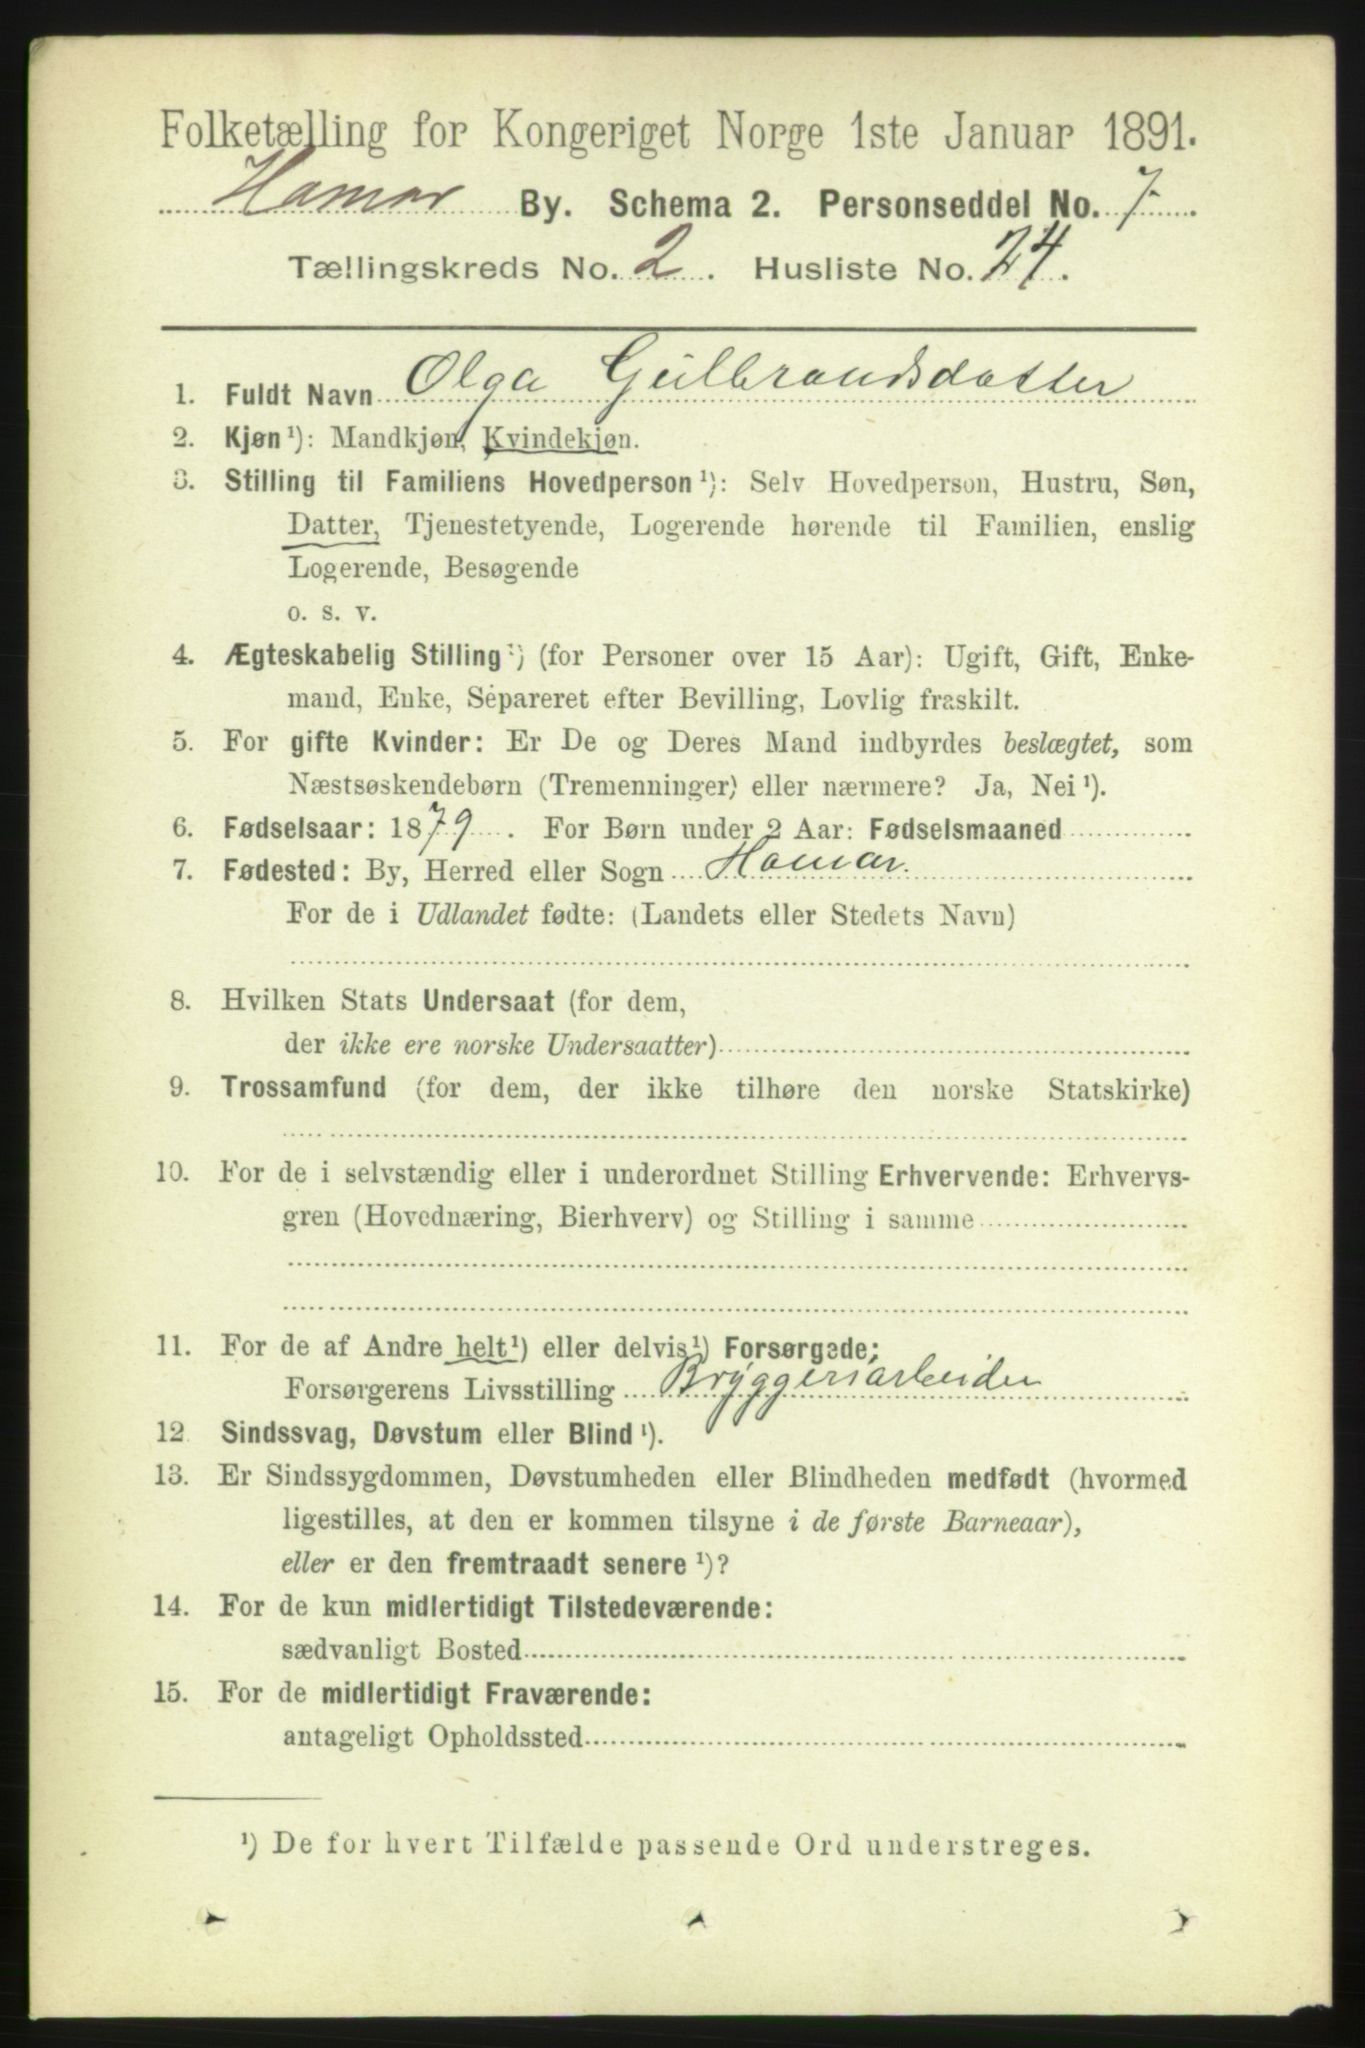 Folketælling for Kongeriget Norge 1ste Januar 1891.
Hamar By. Schema 2. Personseddel No. 7
Tællingskreds No. 2. Husliste No. 24.
1. Fuldt Navn Olga Gulbrandsdatter
2. Kjøn ¹): Mandkjøn, Kvindekjøn.
3. Stilling til Familiens Hovedperson ¹): Selv Hovedperson, Hustru, Søn,
Datter, Tjenestetyende, Logerende hørende til Familien, enslig
Logerende, Besøgende
o. s. v.
4. Ægteskabelig Stilling ¹) (for Personer over 15 Aar): Ugift, Gift, Enke-
mand, Enke, Separeret efter Bevilling, Lovlig fraskilt.
5. For gifte Kvinder: Er De og Deres Mand indbyrdes beslægtet, som
Næstsøskendebørn (Tremenninger) eller nærmere? Ja, Nei ¹).
6. Fødselsaar: 1879. For Børn under 2 Aar: Fødselsmaaned
7. Fødested: By, Herred eller Sogn Hamar.
For de i Udlandet fødte: (Landets eller Stedets Navn)
8. Hvilken Stats Undersaat (for dem,
der ikke ere norske Undersaatter)
9. Trossamfund (for dem, der ikke tilhøre den norske Statskirke)
10. For de i selvstændig eller i underordnet Stilling Erhvervende: Erhvervs-
gren (Hovednæring, Bierhverv) og Stilling i samme
11. For de af Andre helt ¹) eller delvis ¹) Forsørgede;
Forsørgerens Livsstilling Bryggeriarbeider
12. Sindssvag, Døvstum eller Blind ¹).
13. Er Sindssygdommen, Døvstumheden eller Blindheden medfødt (hvormed
ligestilles, at den er kommen tilsyne i de første Barneaar),
eller er den fremtraadt senere ¹)?
14. For de kun midlertidigt Tilstedeværende:
sædvanligt Bosted
15. For de midlertidigt Fraværende:
antageligt Opholdssted
¹) De for hvert Tilfælde passende Ord understreges.